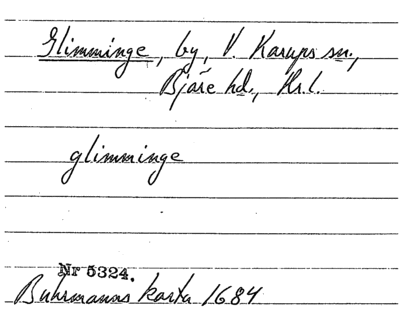 Glimminge, by, V. Karups sn.,
Bjäre hd., Kr. l.
glimminge
Nr 5324.
Buhrmanns karta 1684